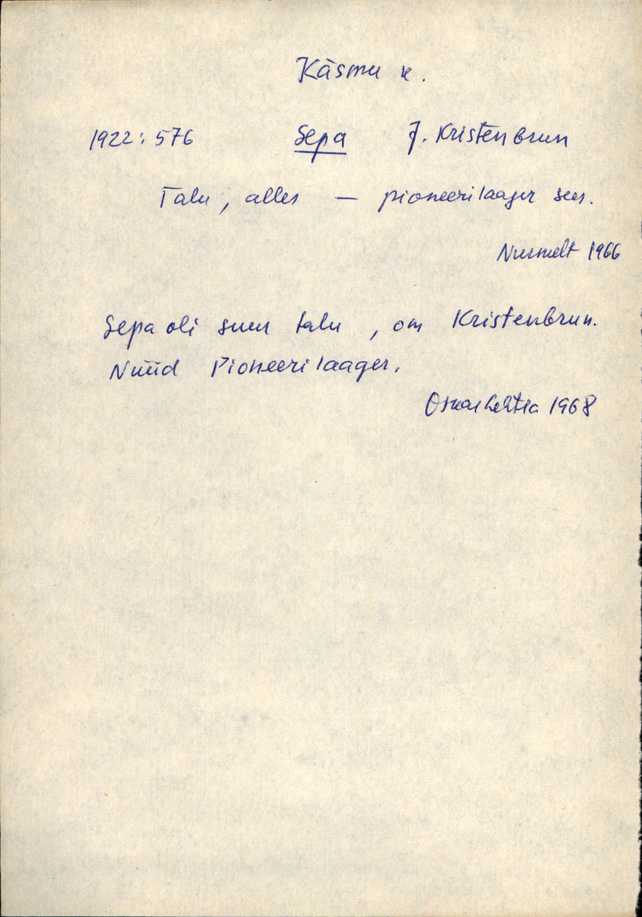 Käsmu k.
1922: 576 Sepa J. Kristenbrun
Talu, alles — pioneerilaager sees.
Nurmelt 1966
Sepa oli suur talu, om Kristenbrun.
Nüüd Pioneerilaager.
Oskar 1968